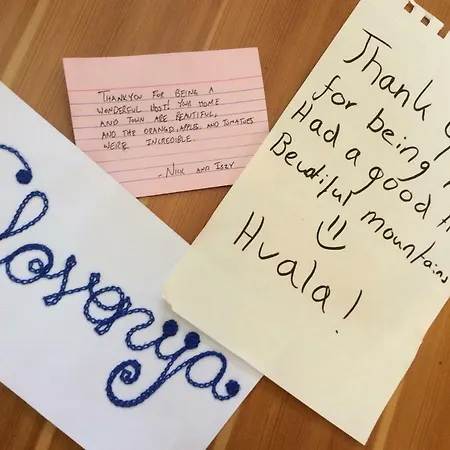 THANKYOU FOR BEING A
WONDERFUL HOST! YOUR HOME
AND TOWN ARE BEAUTIFUL,
AND THE ORANGES, APPLE, AND TOMATOES
WERE INCREDIBLE.
- NICK AND IZZY
Thank
for being
Had a good
Beautiful mountains
Hvala!
Slovenija